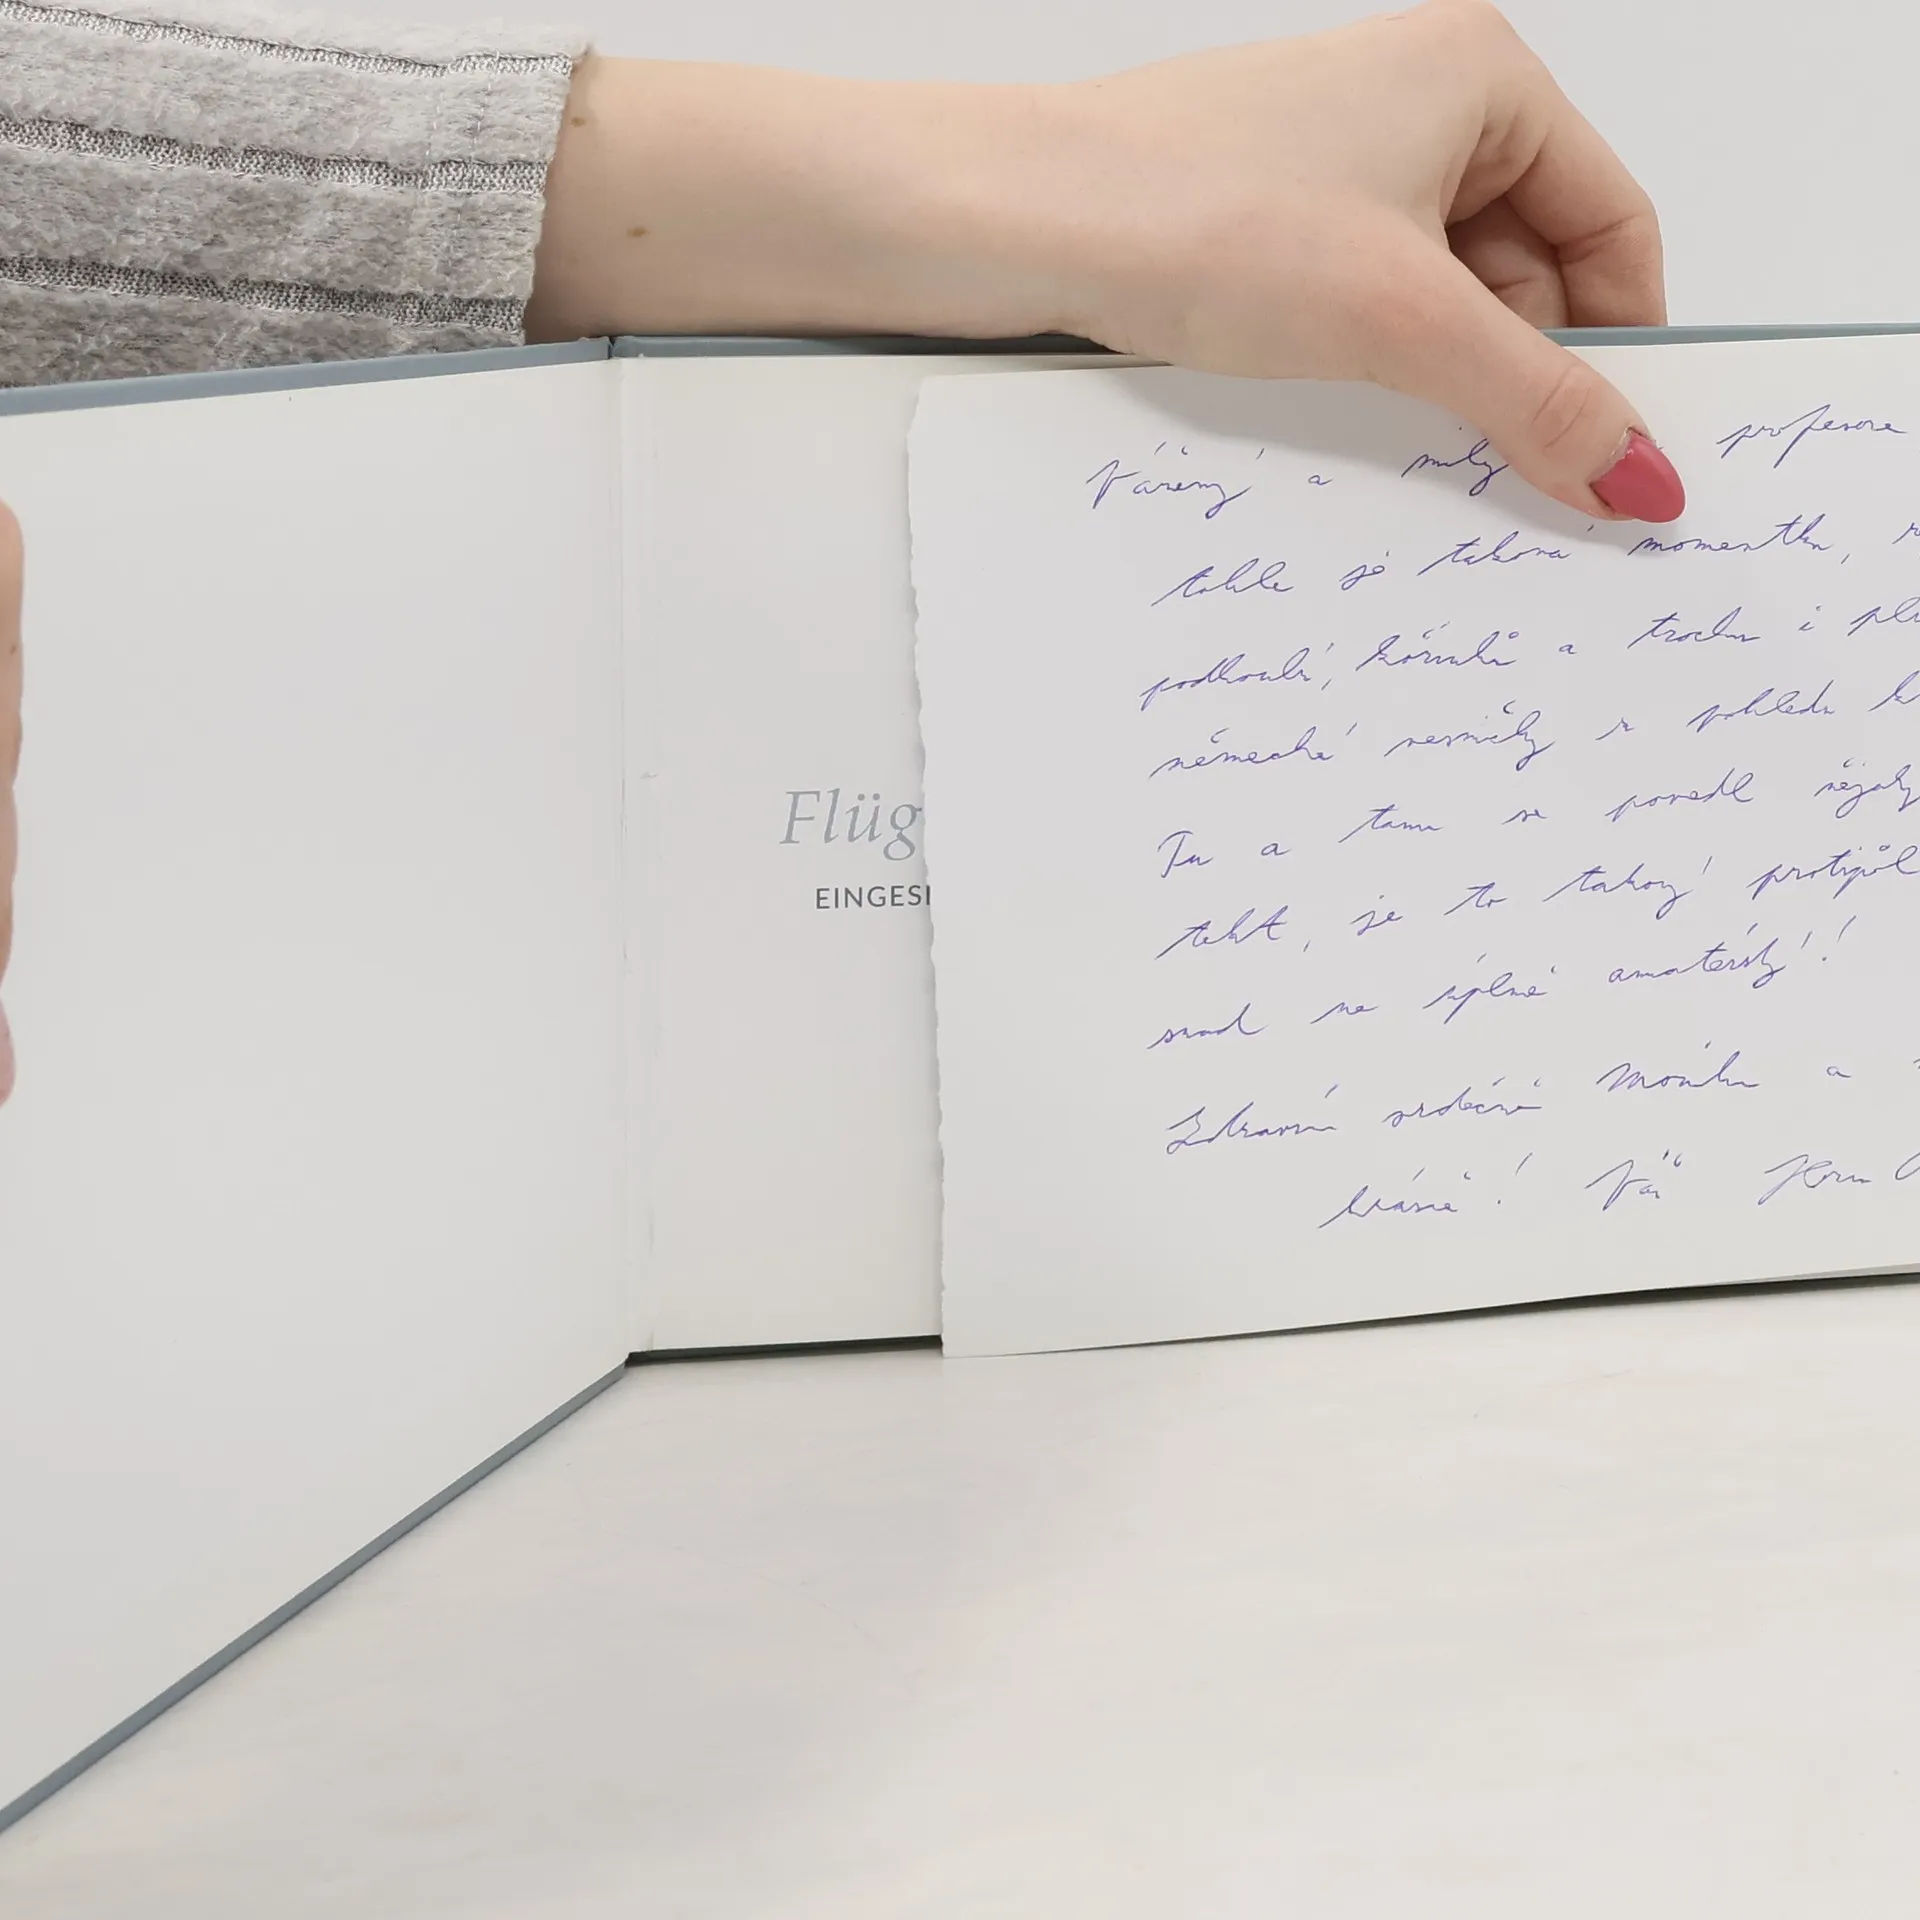 Flüg
EINGESI
Vážený a milý profesore
tohle je taková momentka,
podhoubí, kořínků a trochu i
německé vesničky z pohledu
Tu a tam se povedl nějaký
tekt, je to takový protipól
snad ne úplně amatérský!
Zdravím srdečně Moniku a
krásně! Váš